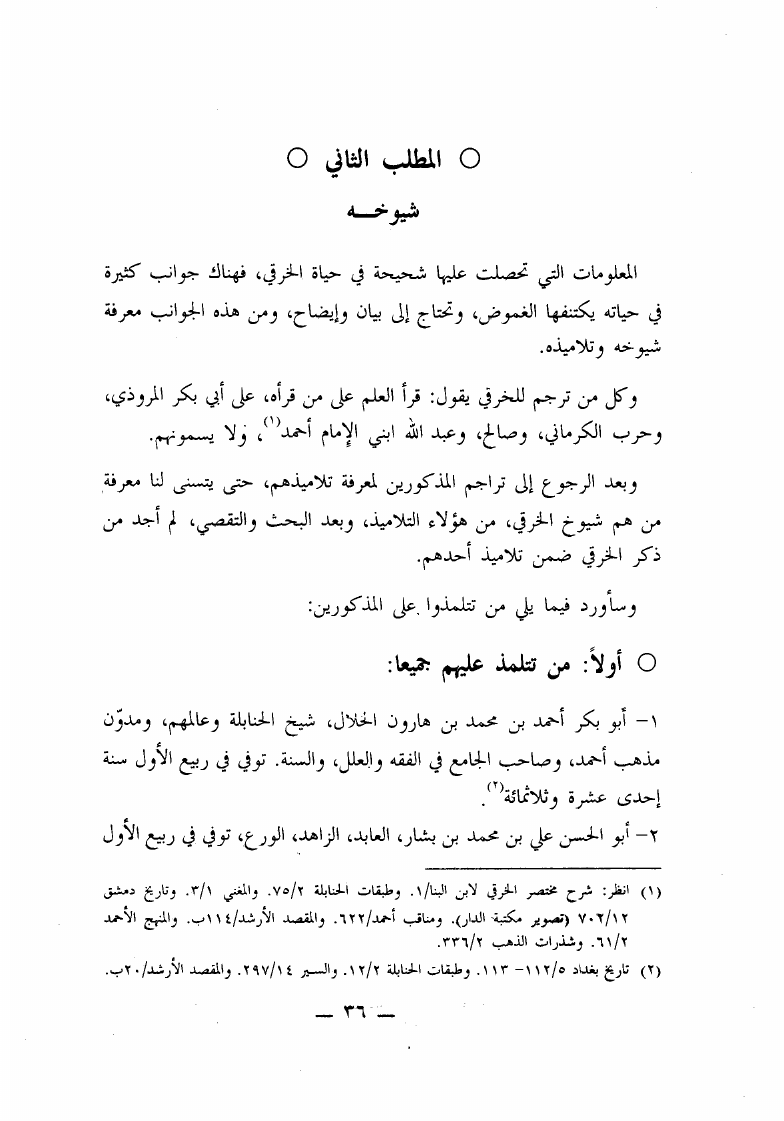 ○ المطلب الثاني ○
شيوخـــه
المعلومات التي تحصلت عليها شحيحة في حياة الخرقي، فهناك جوانب كثيرة
في حياته يكتنفها الغموض، وتحتاج إلى بيان وإيضاح، ومن هذه الجوانب معرفة
شيوخه وتلاميذه.
وكل من ترجم للخرقي يقول: قرأ العلم على من قرأه، على أبي بكر المروذي،
وحرب الكرماني، وصالح، وعبد الله ابني الإمام أحمد(١)، ولا يسمونهم.
وبعد الرجوع إلى تراجم المذكورين لمعرفة تلاميذهم، حتى يتسنى لنا معرفة
من هم شيوخ الخرقي، من هؤلاء التلاميذ، وبعد البحث والتقصي، لم أجد من
ذكر الخرقي ضمن تلاميذ أحدهم.
وسأورد فيما يلي من تتلمذوا على المذكورين:
○ أولاً: من تتلمذ عليهم جميعا:
١- أبو بكر أحمد بن محمد بن هارون الخلال، شيخ الحنابلة وعالمهم، ومدوّن
مذهب أحمد، وصاحب الجامع في الفقه والعلل، والسنة. توفي في ربيع الأول سنة
إحدى عشرة وثلاثمائة(٢).
٢- أبو الحسن علي بن محمد بن بشار، العابد، الزاهد، الورع، توفي في ربيع الأول
(١) انظر: شرح مختصر الخرقي لابن البنا/١. وطبقات الحنابلة ٧٥/٢. والمغني ٣/١. وتاريخ دمشق
٧٠٢/١٢ (تصوير مكتبة الدار). ومناقب أحمد/٦٢٢. والمقصد الأرشد/١١٤ب. والمنهج الأحمد
٦١/٢. وشذرات الذهب ٣٣٦/٢.
(٢) تاريخ بغداد ١١٢/٥- ١١٣. وطبقات الحنابلة ١٢/٢. والسير ٢٩٧/١٤. والمقصد الأرشد/٢٠ب.
— ٣٦ —